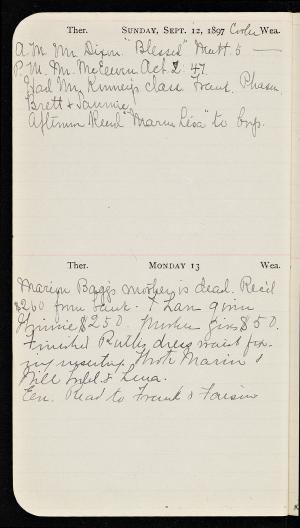 Ther. SUNDAY, SEPT. 12, 1897 Cooler Wea.
A.M. Mr. Dixon. "Blessed" Matt 5 —
P.M. Mr. McEwen Act. 2. 47.
Had Mr. Kinney's class Frank.
Brett &
Afternoon Read " " to boys.
Ther. MONDAY 13 Wea.
Marion Baggs mother is dead. Rec'd
$260 from bank. I have given
Minnie $250. Mother gives $50.
Finished Ruth's dress waist
Wrote Marion &
Will & Lena.
Eve. Read to Frank &